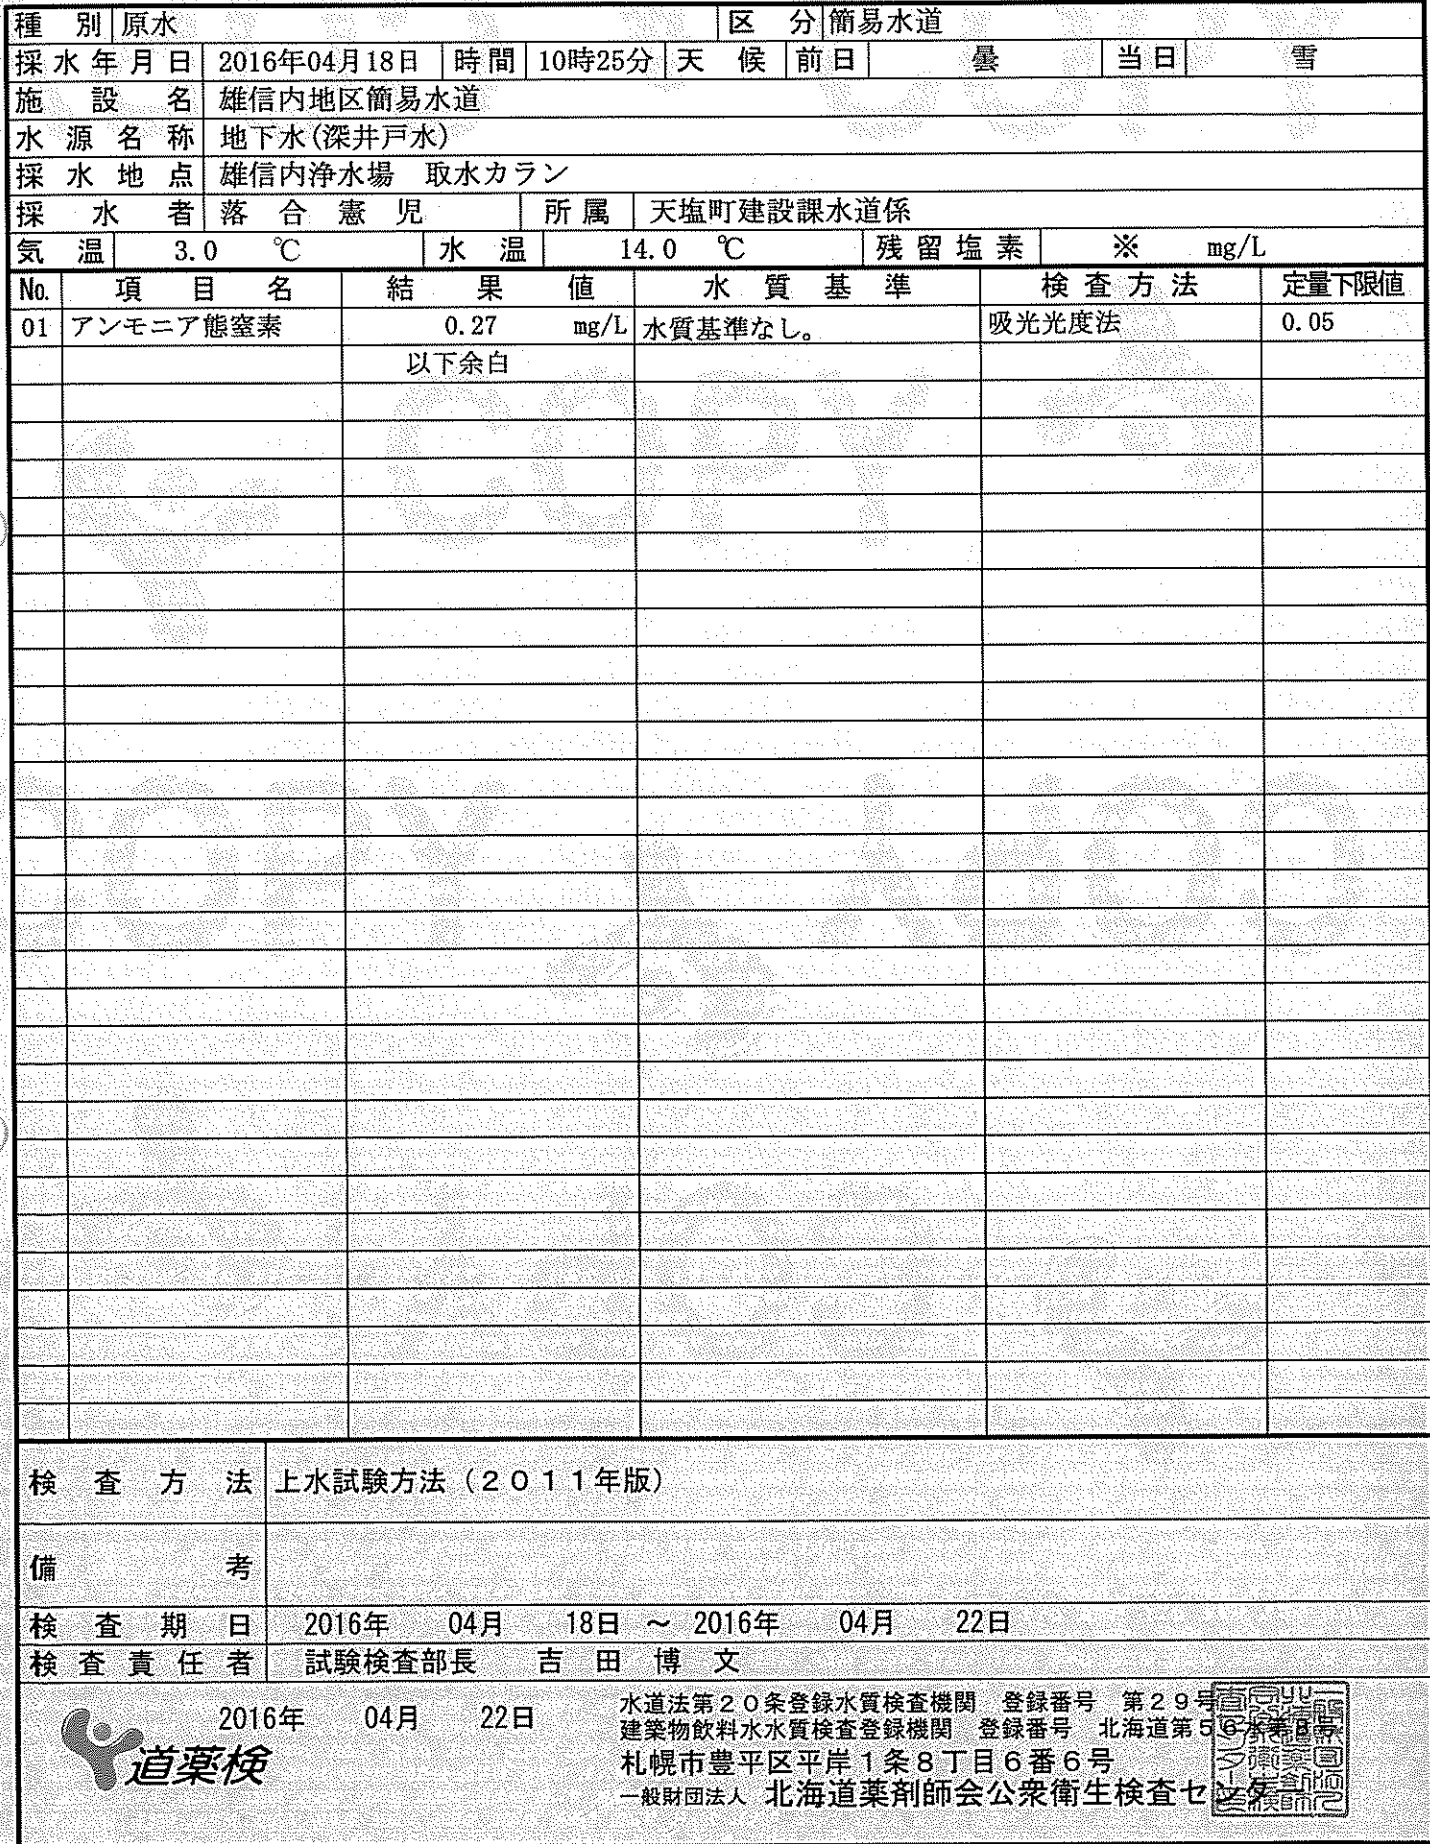 種別 原水 区分 簡易水道
採水年月日 2016年04月18日 時間 10時25分 天候 前日 曇 当日 雪
施設名 雄信内地区簡易水道
水源名称 地下水(深井戸水)
採水地点 雄信内浄水場 取水カラン
採水者 落合憲児 所属 天塩町建設課水道係
気温 3.0 ℃ 水温 14.0 ℃ 残留塩素 ※ mg/L
No. 項目名 結果値 水質基準 検査方法 定量下限値
01 アンモニア態窒素 0.27 mg/L 水質基準なし。 吸光光度法 0.05
以下余白
検査方法 上水試験方法（２０１１年版）
備考
検査期日 2016年 04月 18日 ～ 2016年 04月 22日
検査責任者 試験検査部長 吉田博文
2016年 04月 22日
道薬検
水道法第２０条登録水質検査機関 登録番号 第２９号
建築物飲料水水質検査登録機関 登録番号 北海道第５６水第８号
札幌市豊平区平岸１条８丁目６番６号
一般財団法人 北海道薬剤師会公衆衛生検査センター